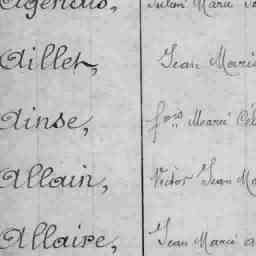 Agenais, Julien Marie
Aillet, Jean Marie
Ainse, f.ois Marie Cél
Allain, Victor Jean Ma
Allaire, Jean Marie a